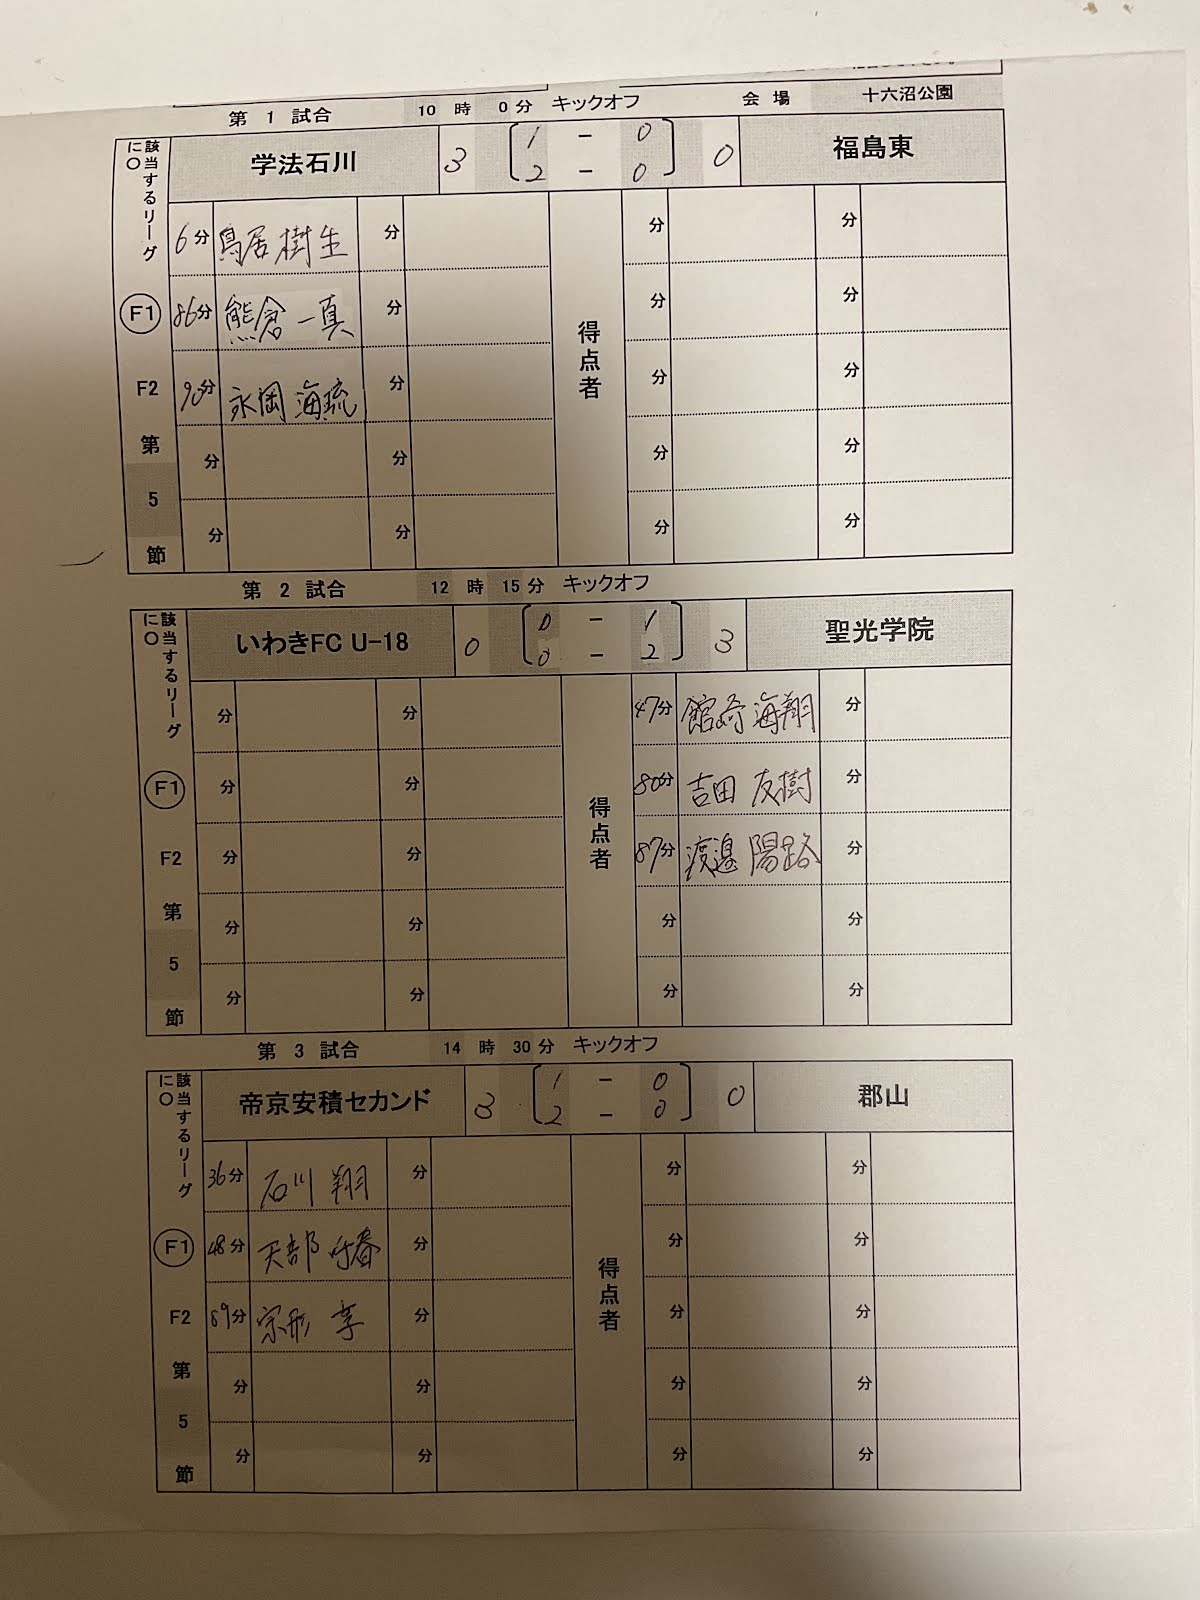 第 1 試合 10 時 0 分 キックオフ 会 場 十六沼公園
該当するリーグに○
学法石川 3 1 - 0 0 福島東
2 - 0
6分 鳥居 樹生 分 分 分
F1 86分 熊倉 一真 分 得点者 分 分
F2 90分 永岡 海琉 分 分 分
第 分 分 分 分
5 分 分 分 分
節
第 2 試合 12 時 15 分 キックオフ
該当するリーグに○
いわきFC U-18 0 0 - 1 3 聖光学院
0 - 2
分 分 47分 館崎 海翔 分
F1 分 分 得点者 80分 吉田 友樹 分
F2 分 分 87分 渡邉 陽路 分
第 分 分 分 分
5 分 分 分 分
節
第 3 試合 14 時 30 分 キックオフ
該当するリーグに○
帝京安積セカンド 3 1 - 0 0 郡山
2 - 0
36分 石川 翔 分 分 分
F1 48分 分 得点者 分 分
F2 89分 宗形 分 分 分
第 分 分 分 分
5 分 分 分 分
節